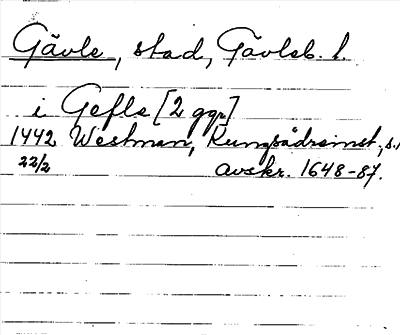 Gävle, stad, Gävleb. l.
i Gefle [2 ggr]
1442 Westman, Kungsådreinst, s.1
22/2 avskr. 1648-87.